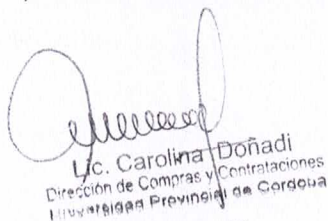 Lic. Carolina Doñadi
Dirección de Compras y Contrataciones
Universidad Provincial de Cordoba